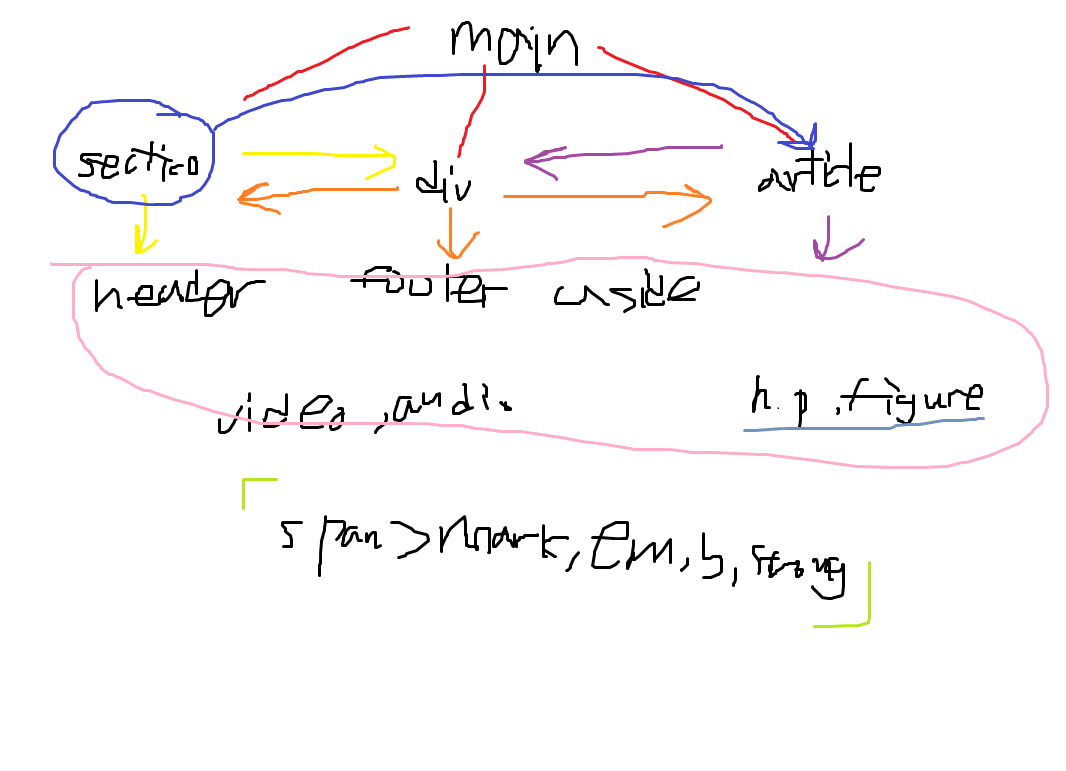 main
section div article
header footer aside
video ,audio h. p ,figure
span>mark, em, b, strong